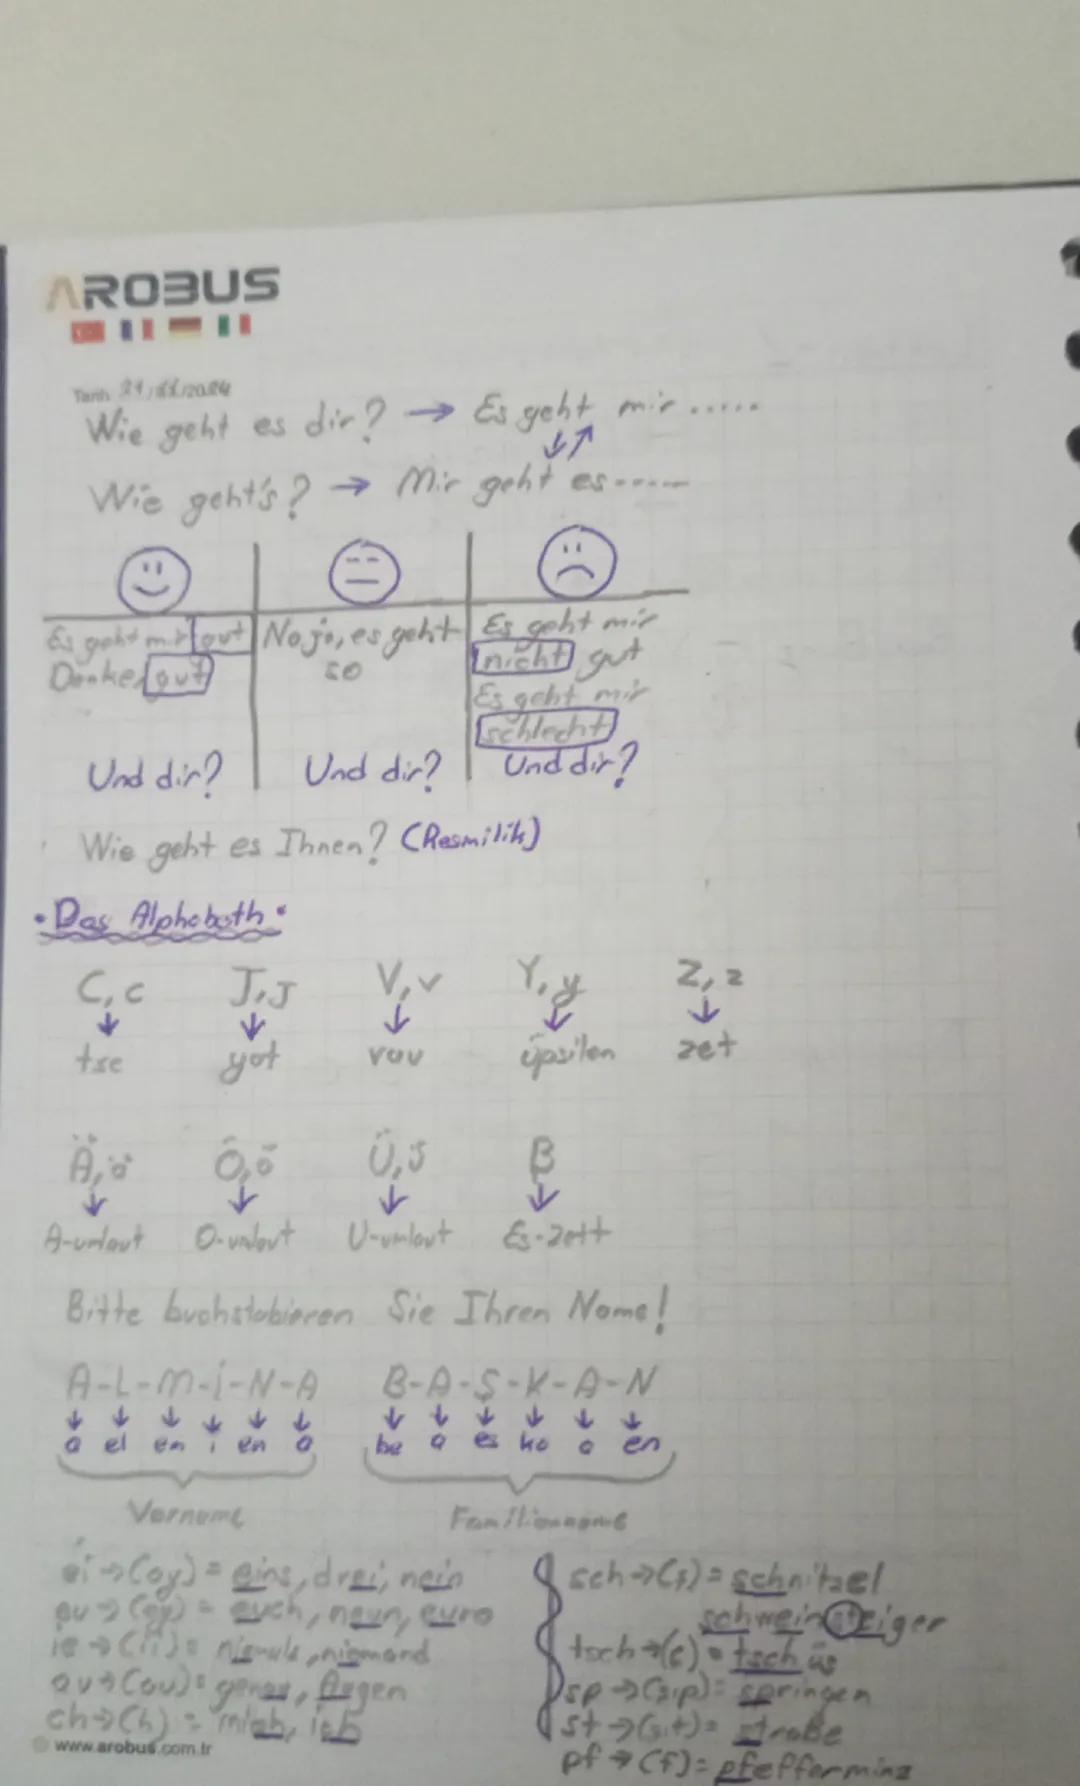 AROBUS
Tarih 21/11/2024
Wie geht es dir? → Es geht mir .....
Wie geht's? → Mir geht es .....
Es geht mir gut
Danke, gut
Und dir?
Na ja, es geht
so
Und dir?
Es geht mir
nicht gut
Es geht mir
schlecht
Und dir?
Wie geht es Ihnen? (Resmilik)
• Das Alphabeth •
C, c J, J V, v Y, y Z, z
↓ ↓ ↓ ↓ ↓
tse yot vau üpsilon zet
Ä, ä Ö, ö Ü, ü ß
↓ ↓ ↓ ↓
A-umlaut O-umlaut U-umlaut Es-zett
Bitte buchstabieren Sie Ihren Name!
A-L-M-İ-N-A B-A-Ş-K-A-N
↓ ↓ ↓ ↓ ↓ ↓ ↓ ↓ ↓ ↓ ↓ ↓
a el em i en a be a es ka a en
Vorname Familienname
ei → (ay) = eins, drei, nein
eu → (oy) = euch, neun, euro
ie → (ii) = niemals, niemand
au → (au) = genau, Augen
ch → (h) = mich, ich
sch → (ş) = schnitzel
schweinsteiger
tsch → (ç) = tschüs
sp → (şp) = springen
st → (şt) = straße
pf → (f) = pfefferminz
www.arobus.com.tr